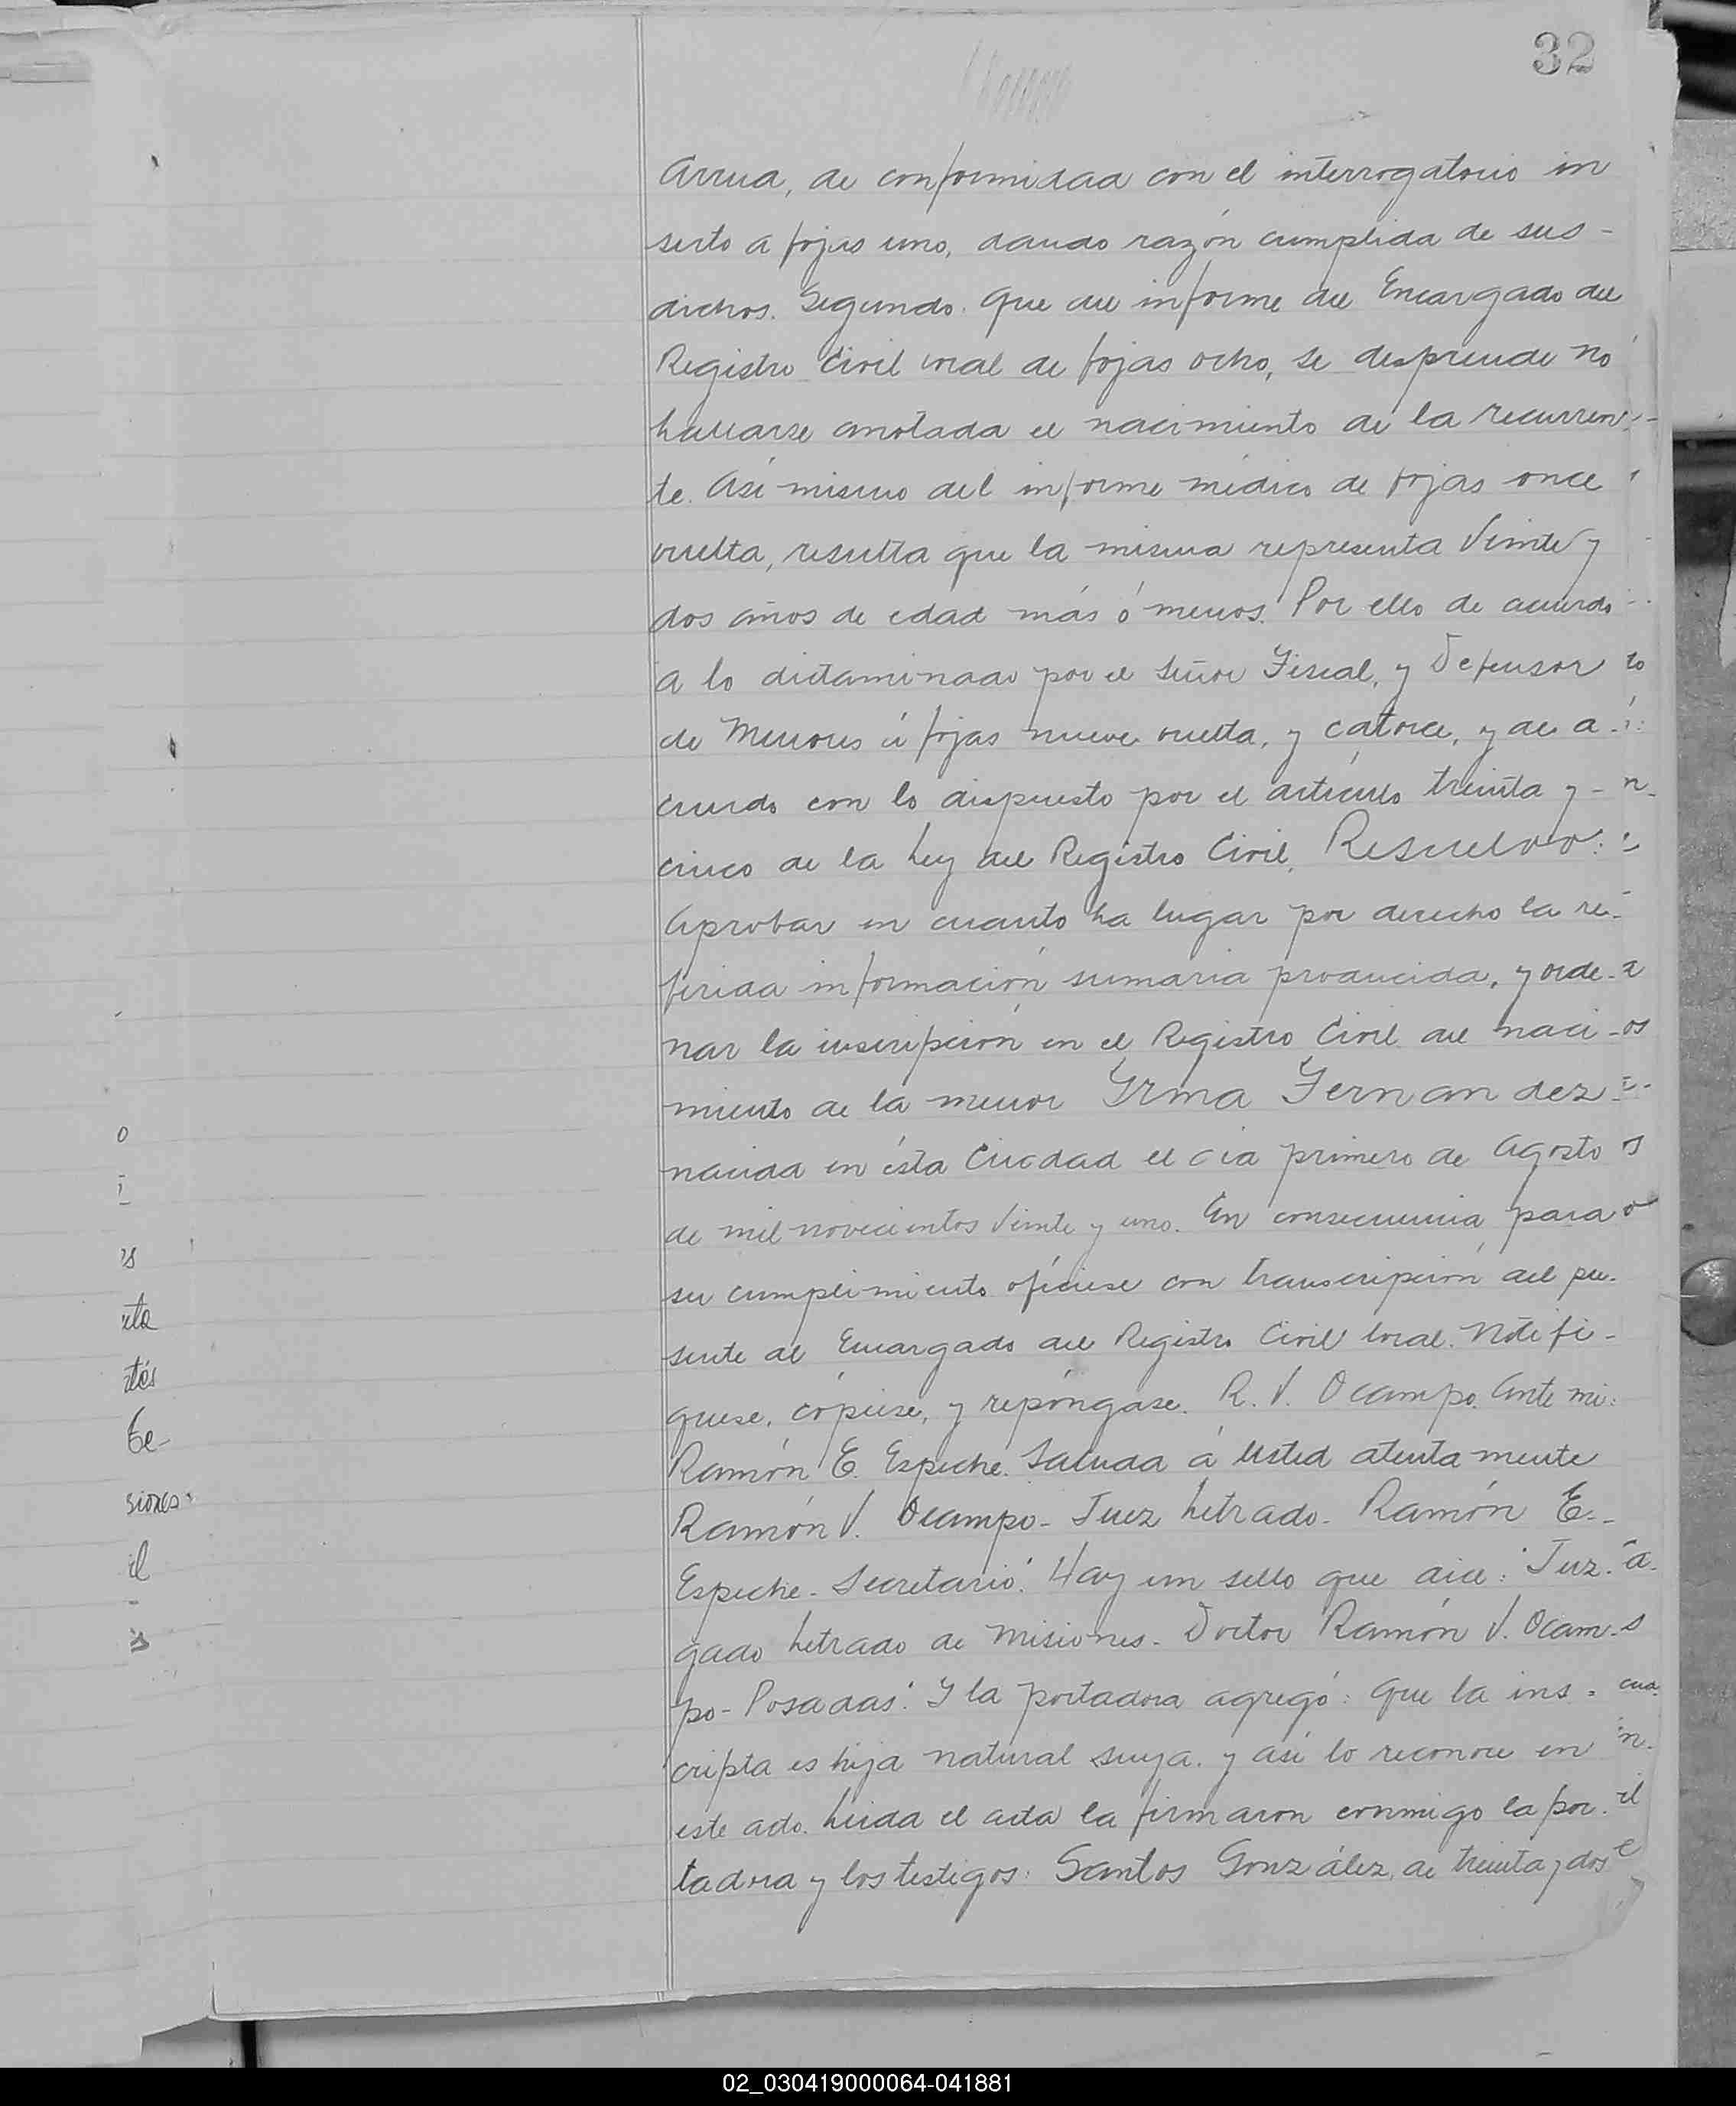 32
Arrua, de conformidad con el interrogatorio in
serto a fojas uno, dando razón cumplida de sus -
dichos. Segundo. Que del informe del Encargado del
Registro Civil local de fojas ocho, se desprende no
hallarse anotada el nacimiento de la recurren-
te. Así mismo del informe médico de fojas once
vuelta, resulta que la misma representa Veinte y
dos años de edad más ó menos. Por ello de acuerdo
a lo dictaminado por el Señor Fiscal, y Defensor
de Menores á fojas nueve vuelta, y catorce, y de a-
cuerdo con lo dispuesto por el artículo treinta y -
cinco de la Ley del Registro Civil. Resuelvo:
Aprobar en cuanto ha lugar por derecho la re-
ferida información sumaria producida, y orde-
nar la inscripción en el Registro Civil del naci-
miento de la menor Yrma Fernandez
nacida en ésta Ciudad el dia primero de Agosto
de mil novecientos Veinte y uno. En consecuencia para
su cumplimiento ofíciese con transcripción del pre-
sente al Encargado del Registro Civil local. Notifi-
quese, cópiese, y repóngase. R. V. Ocampo. Ante mi:
Ramón E. Espeche. Saluda á Usted atentamente
Ramón V. Ocampo - Juez Letrado - Ramón E. -
Espeche - Secretario". Hay un sello que dice: "Juz-
gado Letrado de Misiones - Doctor Ramón V. Ocam-
po - Posadas". Y la portadora agregó: Que la ins-
cripta es hija natural suya. y así lo reconoce en
este acto. Leida el acta la firmaron conmigo la por-
tadora y los testigos: Santos González, de treinta y dos
02_030419000064-041881